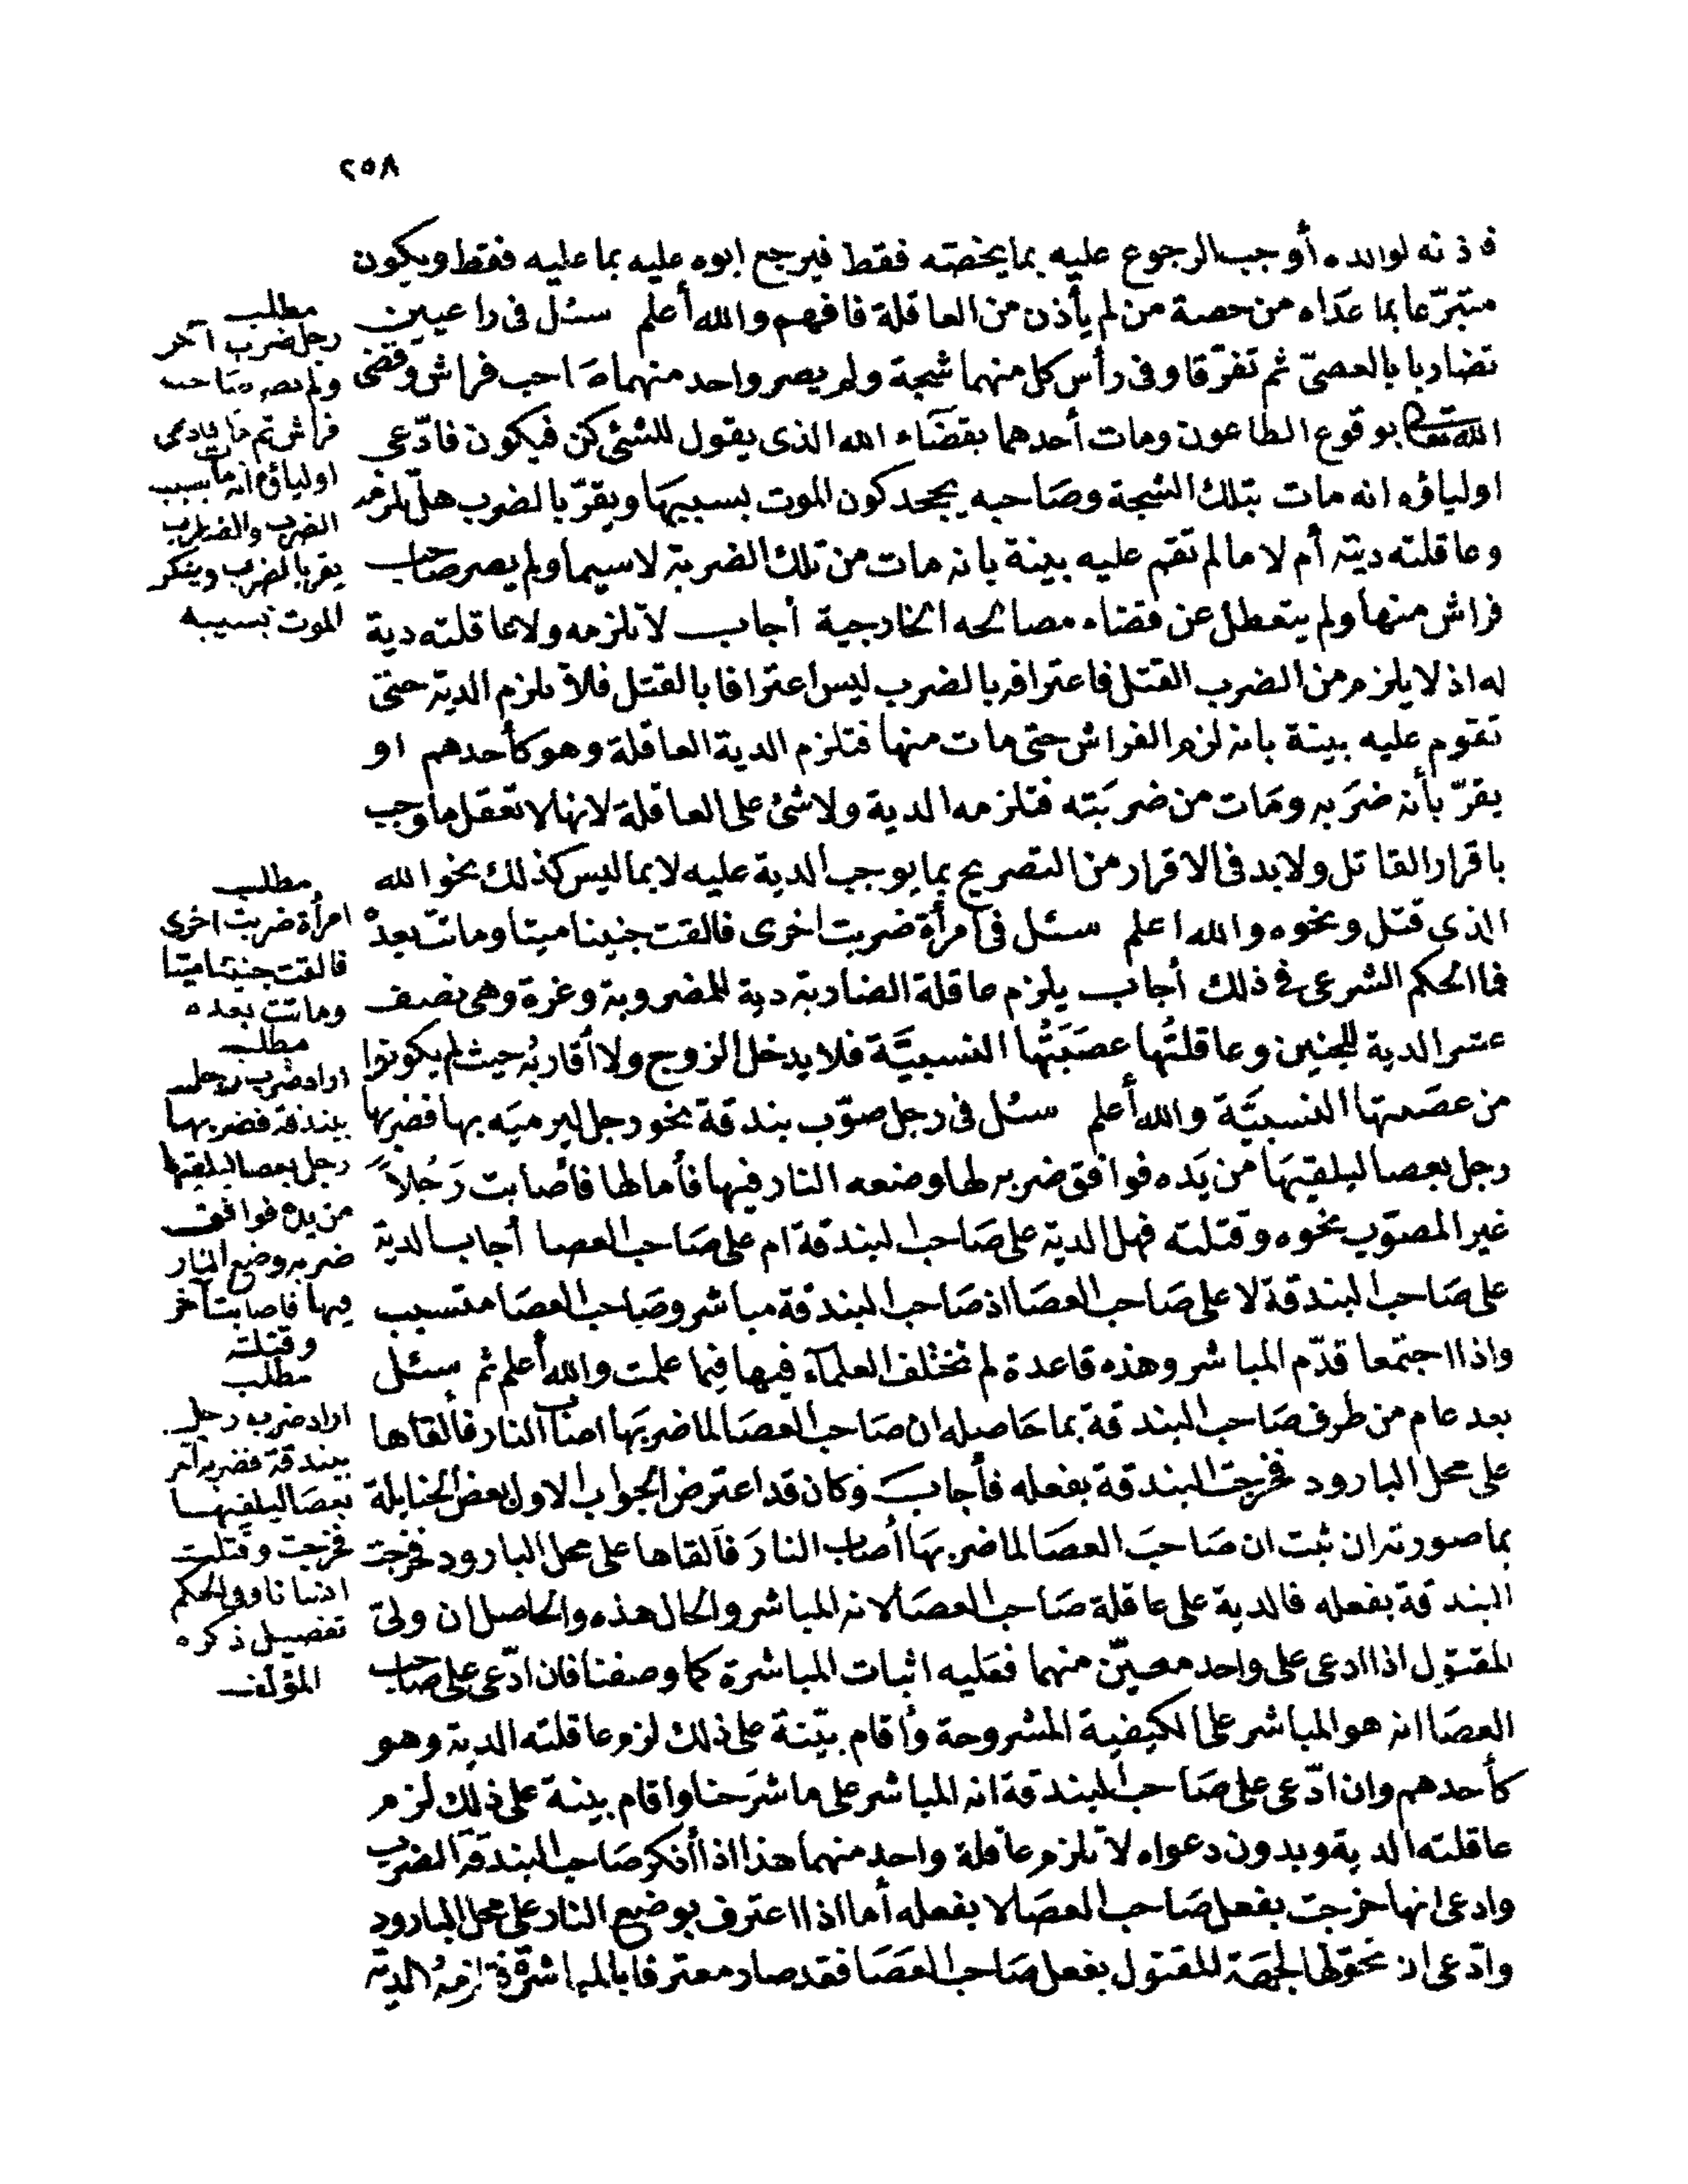 ٢٥٨
فاذنه لوالده أوجب الرجوع عليه بما يخصّه فقط فيرجع ابوه عليه بما عليه فقط ويكون
متبرّعا بما عَدَاه من حصة من لم يأذن من العاقلة فافهم والله أعلم سئل فى راعيين
تضاربا بالعصىّ ثم تفرّقا وفى رأس كل منهما شجة ولم يصر واحد منهما صَاحب فراش وقضى
الله تعالى بوقوع الطاعون ومات أحدهما بقضَاء الله الذى يقول للشئ كن فيكون فادّعى
اولياؤه انه مات بتلك الشجة وصَاحبه يجحد كون الموت بسببهَا ويقرّ بالضرب هل تلزمه
وعاقلته ديته أم لا ما لم تقم عليه بينة بانه مات من تلك الضربة لاسيما ولم يصر صَاحب
فراش منها ولم يتعطل عن قضاء مصالحه الخارجية أجاب لا تلزمه ولا عاقلته دية
له اذ لا يلزم من الضرب القتل فاعترافه بالضرب ليس اعترافا بالقتل فلا تلزم الدية حتى
تقوم عليه بينة بانه لزم الفراش حتى مات منها فتلزم الدية العاقلة وهو كأحدهم او
يقرّ بأنه ضرَبه ومَات من ضربَته فتلزمه الدية ولا شئ على العاقلة لانها لا تعقل ما وجب
باقرار القاتل ولابد فى الاقرار من التصريح بما يوجب الدية عليه لا بما ليس كذلك نحو الله
الذى قتل ونحوه والله اعلم سئل فى امرأة ضربت اخرى فالقت جنينا ميتا وماتت بعده
فما الحكم الشرعى فى ذلك أجاب يلزم عاقلة الضاربة دية المضروبة وغرة وهى نصف
عشر الدية للجنين وعاقلتُها عصَبَتُها النسبيَّة فلا يدخل الزوج ولا أقاربُه حيث لم يكونوا
من عصَبتها النسبيَّة والله أعلم سئل فى رجل صوّب بندقة نحو رجل ليرميَه بها فضربها
رجل بعصا ليلقيهَا من يَده فوافق ضربه لها وضعه النار فيها فأمالها فأصَابت رَجُلاً
غير المصوّب نحوه وقتلته فهل الدية على صَاحب البندقة ام على صَاحب العصا أجاب الدية
على صَاحب البندقة لا على صَاحب العصَا اذ صَاحب البندقة مباشر وصَاحب العصَا متسبب
واذا اجتمعا قدّم المباشر وهذه قاعدة لم تختلف العلمآء فيها فيما علمت والله أعلم ثم سئل
بعد عام من طرف صَاحب البندقة بما حَاصله ان صَاحب العصَا لما ضربهَا اصَاب النار فألقاها
على محل البارود فخرجت البندقة بفعله فأجابَ وكان قد اعترض الجواب الاول بعض الحنابلة
بما صورته ان ثبت ان صَاحبَ العصَا لما ضربهَا أصَاب النارَ فألقاها على محل البارود فخرجت
البندقة بفعله فالدية على عاقلة صَاحب العصَا لانه المباشر والحال هذه والحاصل ان ولىّ
المقتول اذا ادعى على واحد معيّن منهما فعَليه اثبات المباشرة كما وصفنا فان ادّعى على صَاحب
العصَا انه هو المباشر على الكيفية المشروحة وأقام بيّنة على ذلك لزم عاقلته الدية وهو
كأحدهم وان ادّعى على صَاحب البندقة انه المباشر على ما شرَحنا واقام بينة على ذلك لزم
عاقلته الدية وبدون دعواه لا تلزم عاقلة واحد منهما هذا اذا أنكر صَاحب البندقة الضرب
وادعى انها خرجت بفعل صَاحب العصَا لا بفعله أما اذا اعترف بوضع النار على محل البارود
وادّعى ان تحوّلها لجهة المقتول بفعل صَاحب العصَا فقد صار معترفا بالمباشرة لزمه الدية
مطلب
رجل ضرب آخر
ولم يصر صَاحب
فراش ثم مَات فادعى
اولياؤه انه مَات بسبب
الضرب والضارب
يقر بالضرب وينكر
الموت بسببه
مطلب
امرأة ضربت اخرى
فالقت جنينا ميتا
وماتت بعده
مطلب
اراد ضرب رجل
ببندقة فضربها
رجل بعصا ليلقيها
من يده فوافق
ضربه وضع النار
فيها فاصابت آخر
وقتلته
مطلب
اراد ضرب رجل
ببندقة فضربه آخر
بعصَا ليلقيها
فخرجت وقتلت
انسانا وفى الحكم
تفصيل ذكره
المؤلف